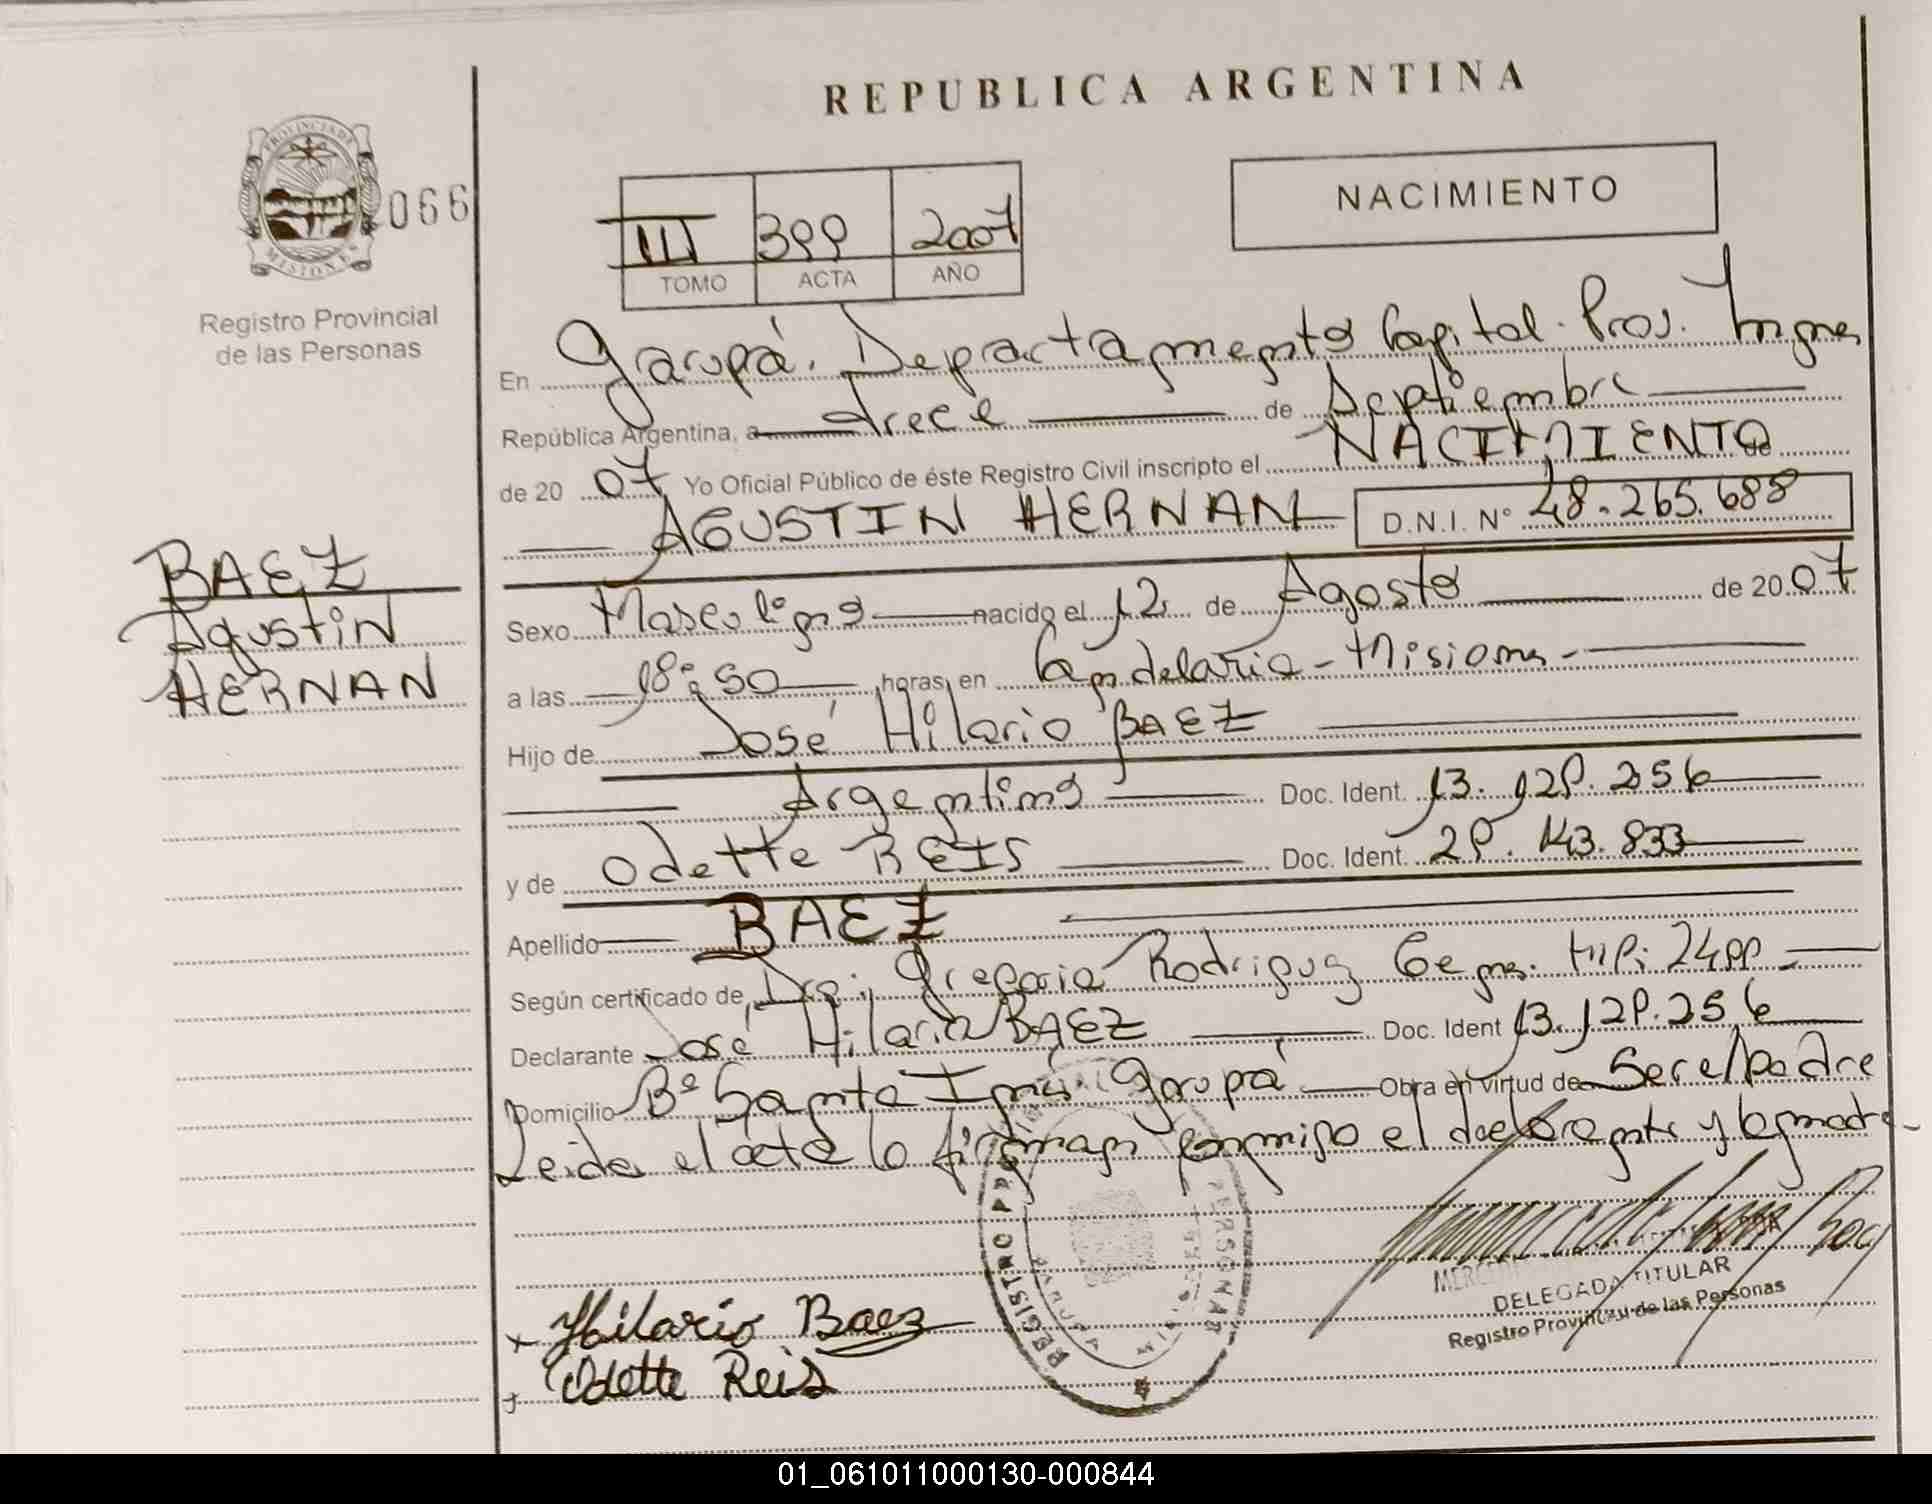 REPUBLICA ARGENTINA
PROVINCIA DE
MISIONES
066
Registro Provincial
de las Personas
III 399 2007
TOMO ACTA AÑO
NACIMIENTO
En Garupá. Departamento Capital. Prov. Mnes
República Argentina, a trece de Septiembre
de 20 07 Yo Oficial Público de éste Registro Civil inscripto el NACIMIENTO de
AGUSTIN HERNAN D.N.I. Nº 48.265.688
BAEZ
Agustin
HERNAN
Sexo Masculino nacido el 12 de Agosto de 20 07
a las 18:50 horas, en Candelaria - Misiones -
Hijo de José Hilario BAEZ
Argentino Doc. Ident. 13.129.256
y de Odette REIS Doc. Ident. 29.143.833
Apellido BAEZ
Según certificado de, Dra. Gregoria Rodriguez M.P: 2499
Declarante José Hilario BAEZ Doc. Ident 13.129.256
Domicilio Bº Santa Inés. Garupá Obra en virtud de Ser el padre
Leida el acta la firman conmigo el declarante y la madre-
DELEGADA TITULAR
Registro Provincial de las Personas
x Hilario Baez
x Odette Reis
REGISTRO
01_061011000130-000844